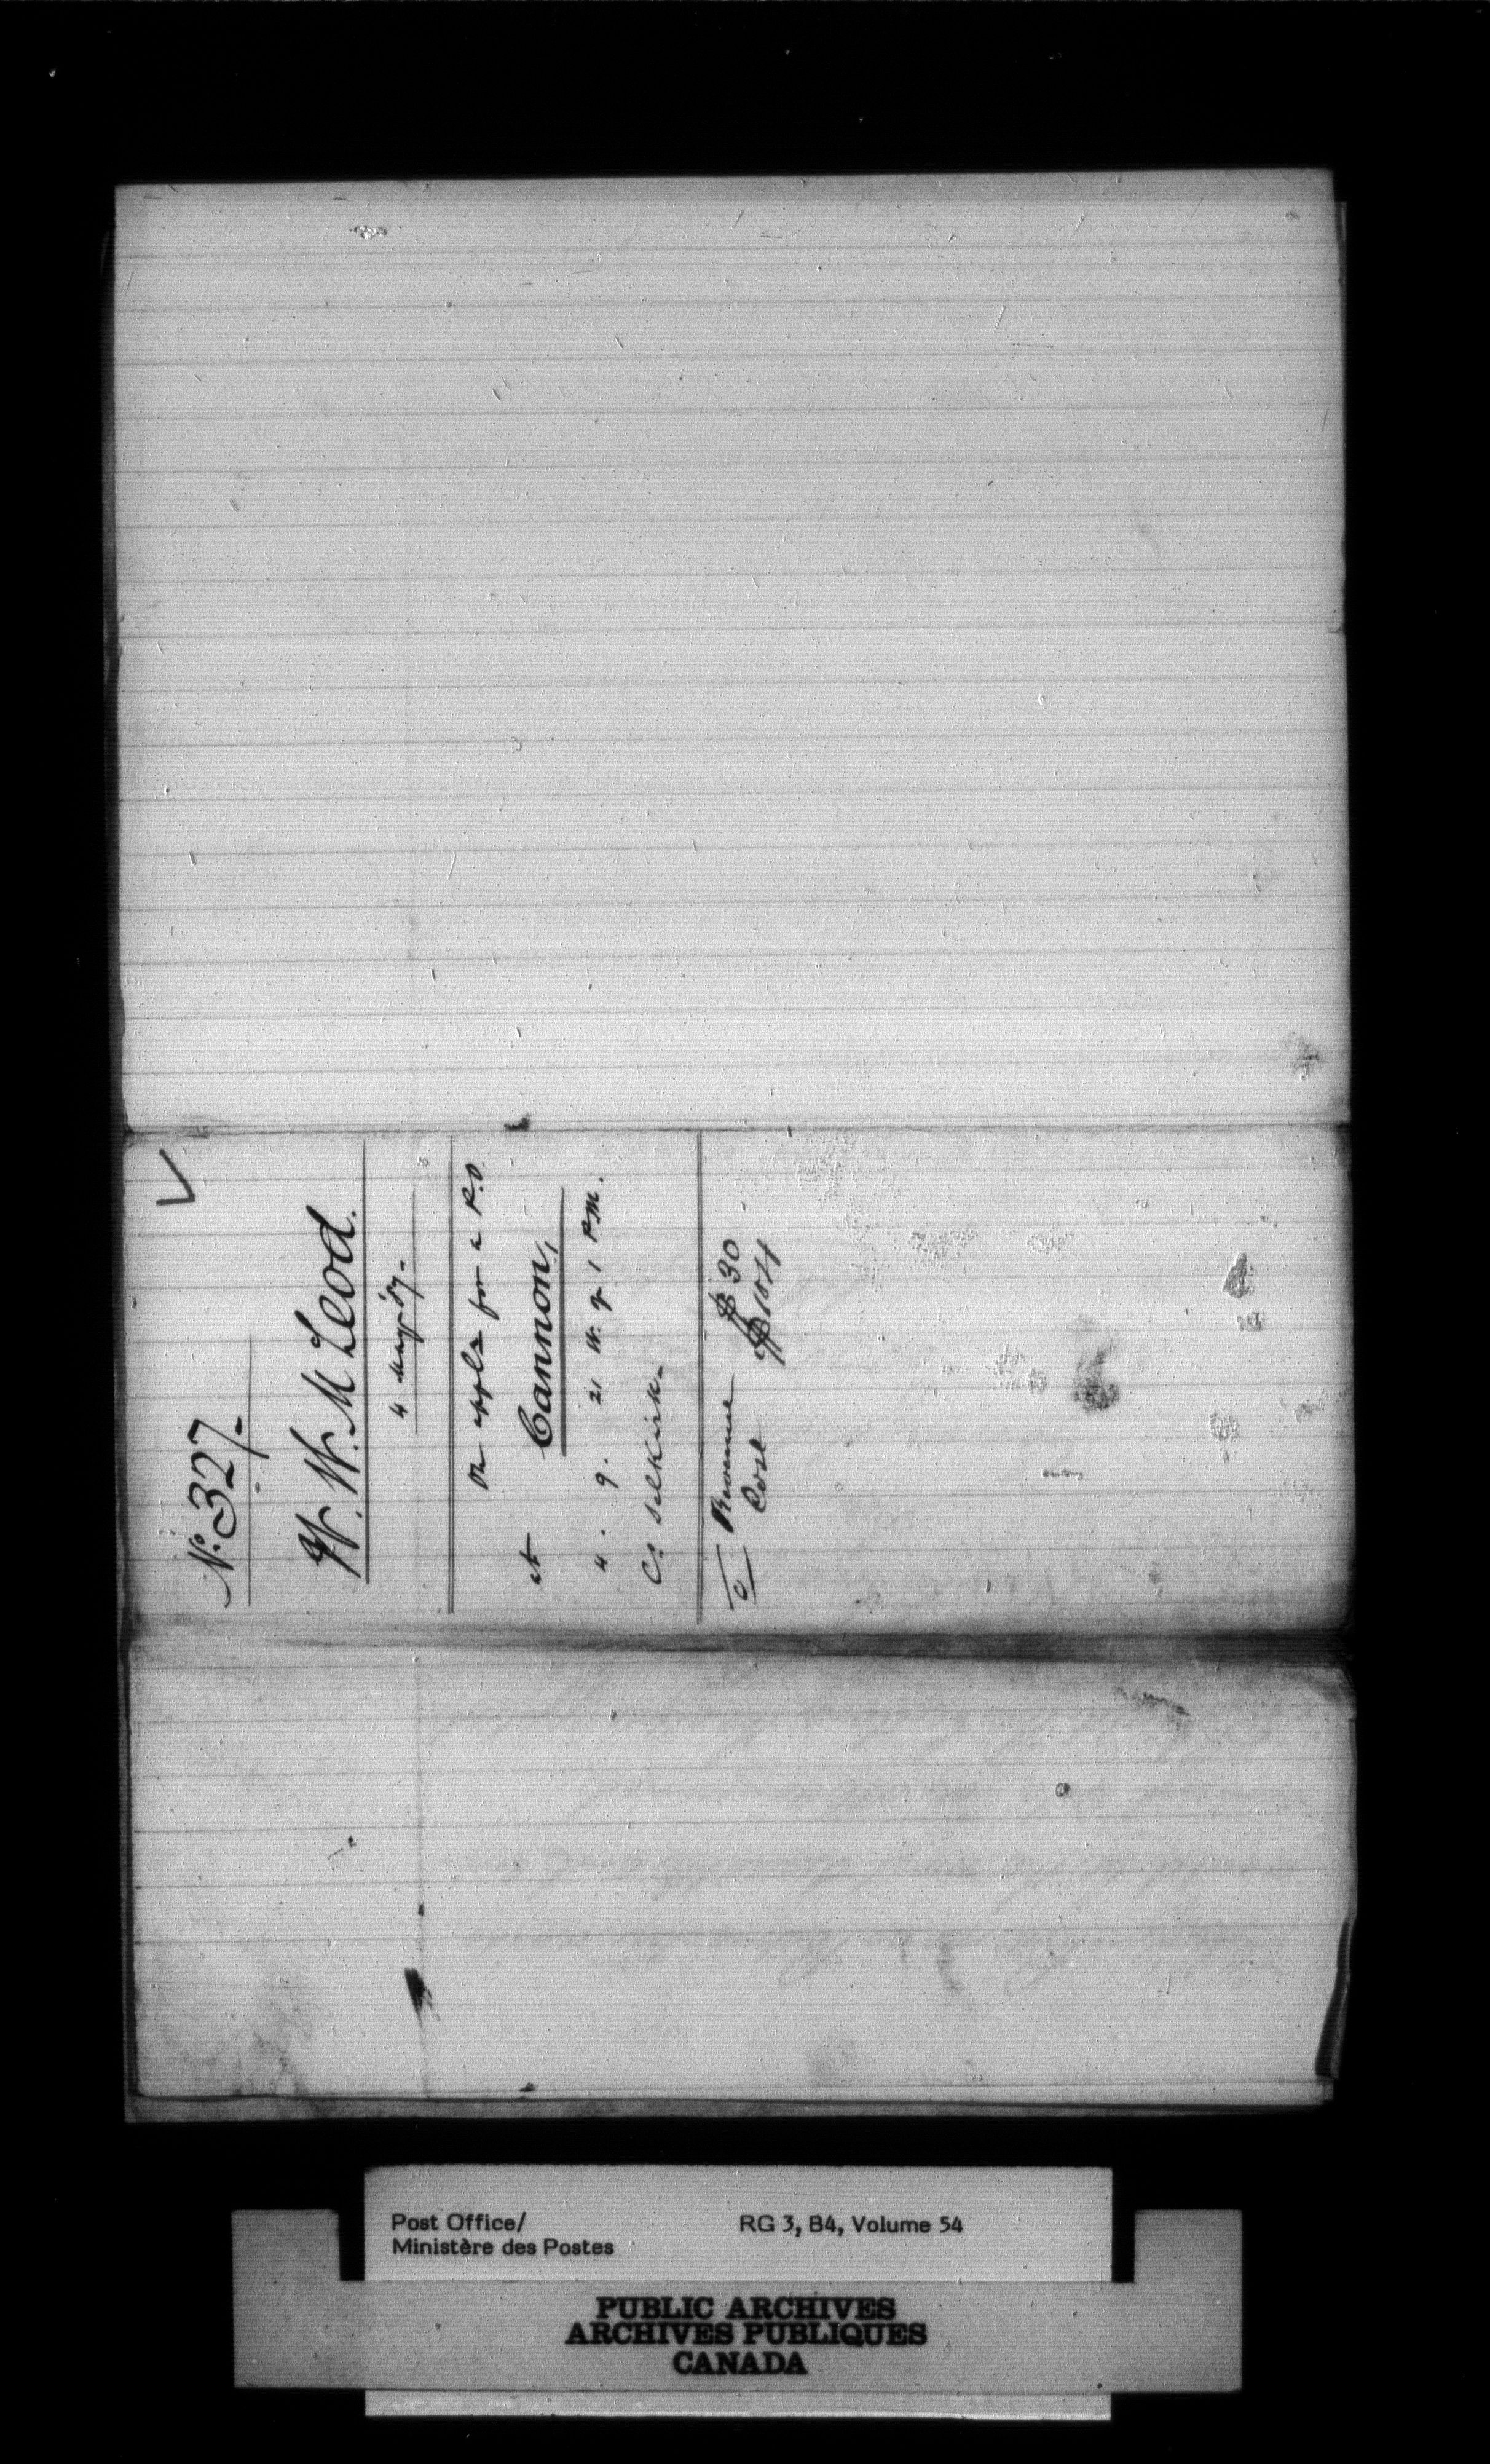 No. 327.
W. W. McLeod.
4 May '87.
On appln for a P.O.
at Cannon,
4. 9. 21 W. of 1 P.M.
Co. Selkirk.
c Revenue $30
Cost $104
Post Office/
Ministère des Postes
RG 3, B4, Volume 54
PUBLIC ARCHIVES
ARCHIVES PUBLIQUES
CANADA